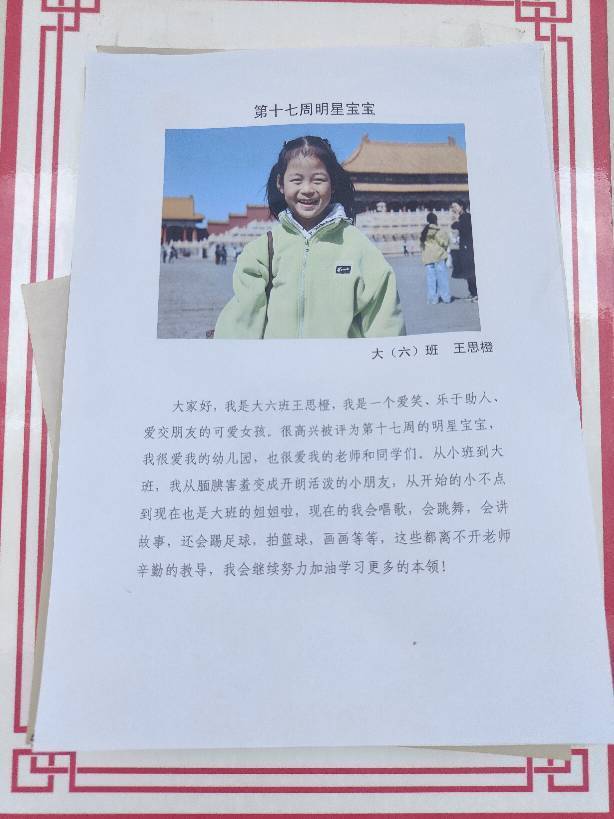 第十七周明星宝宝
大（六）班 王思橙
大家好，我是大六班王思橙，我是一个爱笑、乐于助人、
爱交朋友的可爱女孩。很高兴被评为第十七周的明星宝宝，
我很爱我的幼儿园，也很爱我的老师和同学们。从小班到大
班，我从腼腆害羞变成开朗活泼的小朋友，从开始的小不点
到现在也是大班的姐姐啦，现在的我会唱歌，会跳舞，会讲
故事，还会踢足球，拍篮球，画画等等，这些都离不开老师
辛勤的教导，我会继续努力加油学习更多的本领！